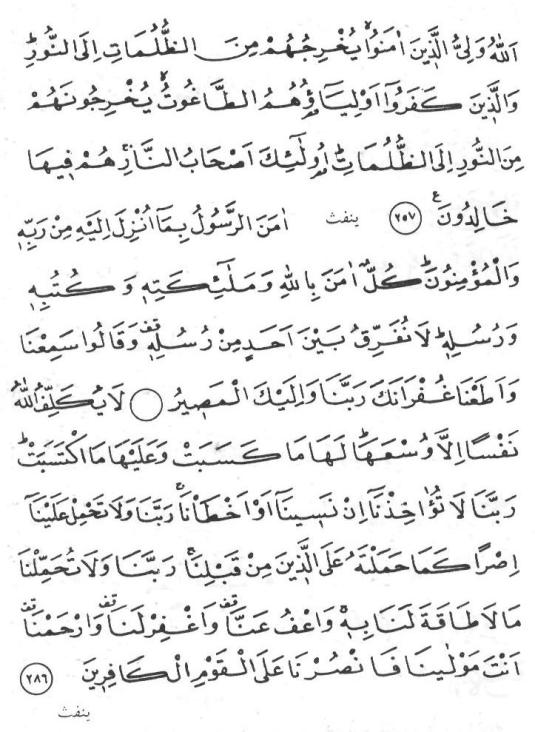 اَللّٰهُ وَلِيُّ الَّذٖينَ اٰمَنُواۙ يُخْرِجُهُمْ مِنَ الظُّلُمَاتِ اِلَى النُّورِؕ
وَالَّذٖينَ كَفَرُٓوا اَوْلِيَٓاؤُ۬هُمُ الطَّاغُوتُۙ يُخْرِجُونَهُمْ
مِنَ النُّورِ اِلَى الظُّلُمَاتِؕ اُو۬لٰٓئِكَ اَصْحَابُ النَّارِۚ هُمْ فٖيهَا
خَالِدُونَࣖ ﴿٢٥٧﴾ ينفث اٰمَنَ الرَّسُولُ بِمَٓا اُنْزِلَ اِلَيْهِ مِنْ رَبِّهٖ
وَالْمُؤْمِنُونَؕ كُلٌّ اٰمَنَ بِاللّٰهِ وَمَلٰٓئِكَتِهٖ وَكُتُبِهٖ
وَرُسُلِهٖؕ لَا نُفَرِّقُ بَيْنَ اَحَدٍ مِنْ رُسُلِهٖ قف وَقَالُوا سَمِعْنَا
وَاَطَعْنَا غُفْرَانَكَ رَبَّنَا وَاِلَيْكَ الْمَصٖيرُ ۝ لَا يُكَلِّفُ اللّٰهُ
نَفْسًا اِلَّا وُسْعَهَاؕ لَهَا مَا كَسَبَتْ وَعَلَيْهَا مَا اكْتَسَبَتْؕ
رَبَّنَا لَا تُؤَاخِذْنَٓا اِنْ نَسٖينَٓا اَوْ اَخْطَاْنَاۚ رَبَّنَا وَلَا تَحْمِلْ عَلَيْنَٓا
اِصْرًا كَمَا حَمَلْتَهُ عَلَى الَّذٖينَ مِنْ قَبْلِنَاۚ رَبَّنَا وَلَا تُحَمِّلْنَا
مَا لَا طَاقَةَ لَنَا بِهٖۚ وَاعْفُ عَنَّا قف وَاغْفِرْ لَنَا قف وَارْحَمْنَا قف
اَنْتَ مَوْلٰينَا فَانْصُرْنَا عَلَى الْقَوْمِ الْكَافِرٖينَ ﴿٢٨٦﴾
ينفث